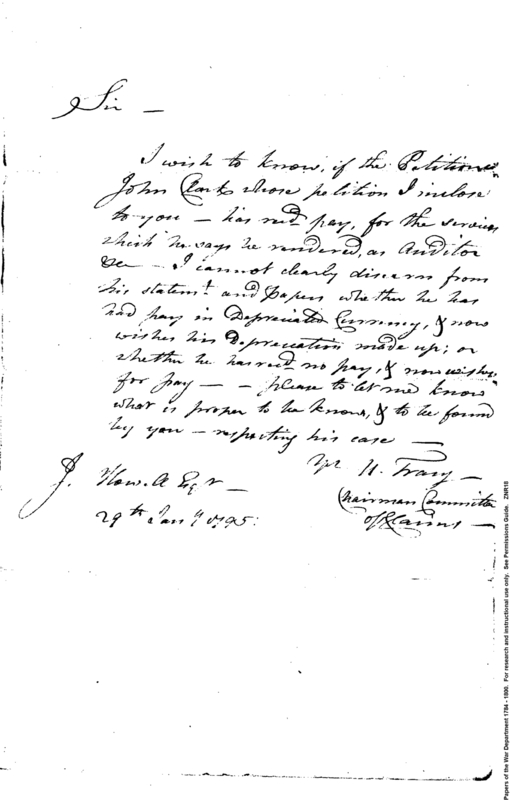 Sir —
I wish to know, if the Petitioner
John Clark whose petition I inclose
to you — has recd pay, for the services
which he says he rendered, as Auditor
&c — I cannot clearly discern from
his statemt and Papers whether he has
had pay in Depreciated Currency, & now
wishes his Depreciation made up; or
whether he has recd no pay, & now wishes
for pay — — please to let me know
what is proper to be known, & to be found
by you — respecting his case —
Yr U. Tracy —
Chairman Committee
of Claims —
J. Howell Esqr —
29th Jany 1795.
Papers of the War Department 1784 - 1800. For research and instructional use only. See Permissions Guide. ZNR18